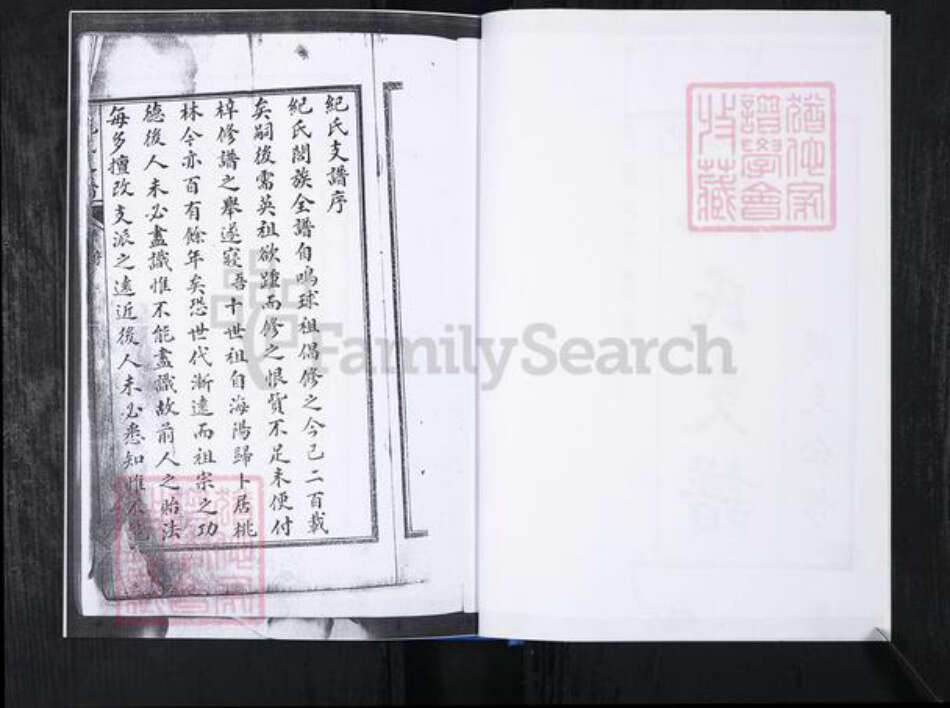 紀氏支譜序
紀氏闔族全譜自鳴球祖倡修之今已二百載
矣嗣後需英祖欲踵而修之恨貲不足未便付
梓修譜之舉遂寢吾十世祖自海陽歸卜居桃
林今亦百有餘年矣恐世代漸遠而祖宗之功
德後人未必盡識惟不能盡識故前人之貽法
每多擅改支派之遠近後人未必悉知惟不能
FamilySearch
譜學會
收藏